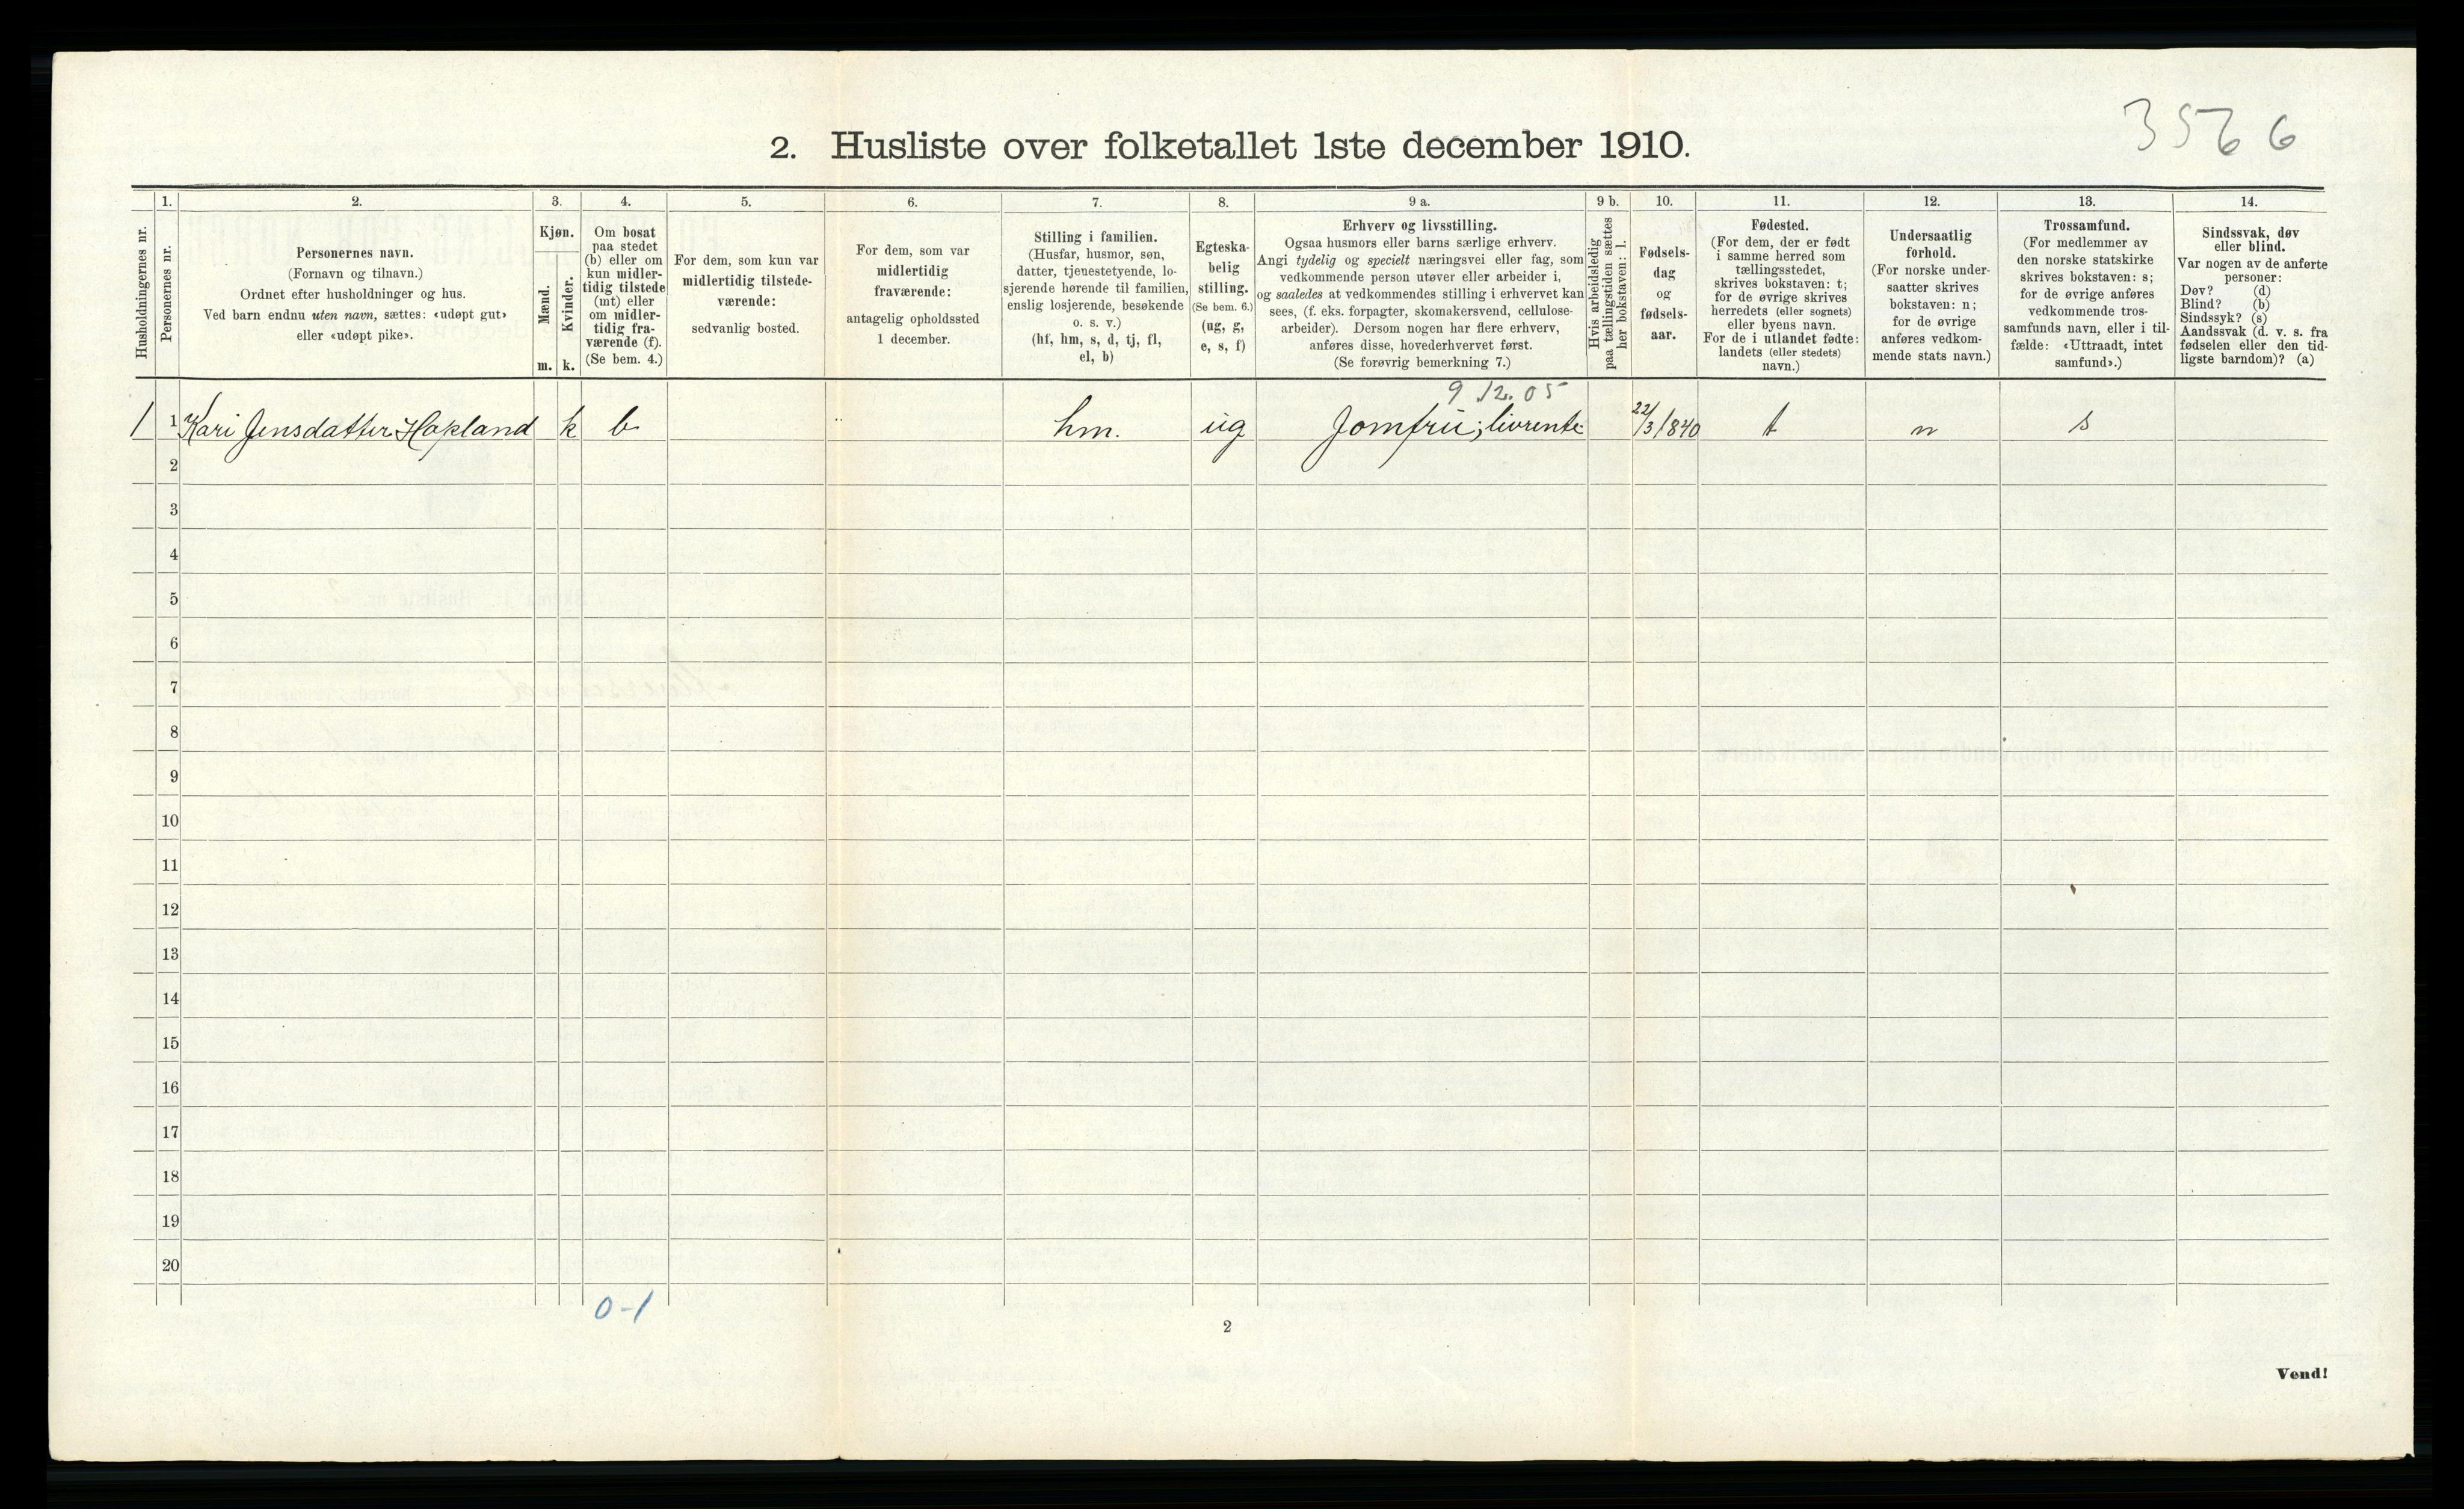 3566
2. Husliste over folketallet 1ste december 1910.
Husholdningernes nr.
1.
Personernes nr.
2.
Personernes navn.
(Fornavn og tilnavn.)
Ordnet efter husholdninger og hus.
Ved barn endnu uten navn, sættes: «udøpt gut»
eller «udøpt pike».
3.
Kjøn.
Mænd.
Kvinder.
m. k.
4.
Om bosat
paa stedet
(b) eller om
kun midler-
tidig tilstede
(mt) eller
om midler-
tidig fra-
værende (f).
(Se bem. 4.)
5.
For dem, som kun var
midlertidig tilstede-
værende:
sedvanlig bosted.
6.
For dem, som var
midlertidig
fraværende:
antagelig opholdssted
1 december.
7.
Stilling i familien.
(Husfar, husmor, søn,
datter, tjenestetyende, lo-
sjerende hørende til familien,
enslig losjerende, besøkende
o. s. v.)
(hf, hm, s, d, tj, fl,
el, b)
8.
Egteska-
belig
stilling.
(Se bem. 6.)
(ug, g,
e, s, f)
9 a.
Erhverv og livsstilling.
Ogsaa husmors eller barns særlige erhverv.
Angi tydelig og specielt næringsvei eller fag, som
vedkommende person utøver eller arbeider i,
og saaledes at vedkommendes stilling i erhvervet kan
sees, (f. eks. forpagter, skomakersvend, cellulose-
arbeider). Dersom nogen har flere erhverv,
anføres disse, hovederhvervet først.
(Se forøvrig bemerkning 7.)
9 b.
Hvis arbeidsledig
paa tællingstiden sættes
her bokstaven: l.
10.
Fødsels-
dag
og
fødsels-
aar.
11.
Fødested.
(For dem, der er født
i samme herred som
tællingsstedet,
skrives bokstaven: t;
for de øvrige skrives
herredets (eller sognets)
eller byens navn.
For de i utlandet fødte:
landets (eller stedets)
navn.)
12.
Undersaatlig
forhold.
(For norske under-
saatter skrives
bokstaven: n;
for de øvrige
anføres vedkom-
mende stats navn.)
13.
Trossamfund.
(For medlemmer av
den norske statskirke
skrives bokstaven: s;
for de øvrige anføres
vedkommende tros-
samfunds navn, eller i til-
fælde: «Uttraadt, intet
samfund».)
14.
Sindssvak, døv
eller blind.
Var nogen av de anførte
personer:
Døv? (d)
Blind? (b)
Sindssyk? (s)
Aandssvak (d. v. s. fra
fødselen eller den tid-
ligste barndom)? (a)
9.12.05
1 1 Kari Jensdatter Hopland k b hm. ug Jomfru; livrente 22/3 1840 t n s
2
3
4
5
6
7
8
9
10
11
12
13
14
15
16
17
18
19
20
0-1
2
Vend!